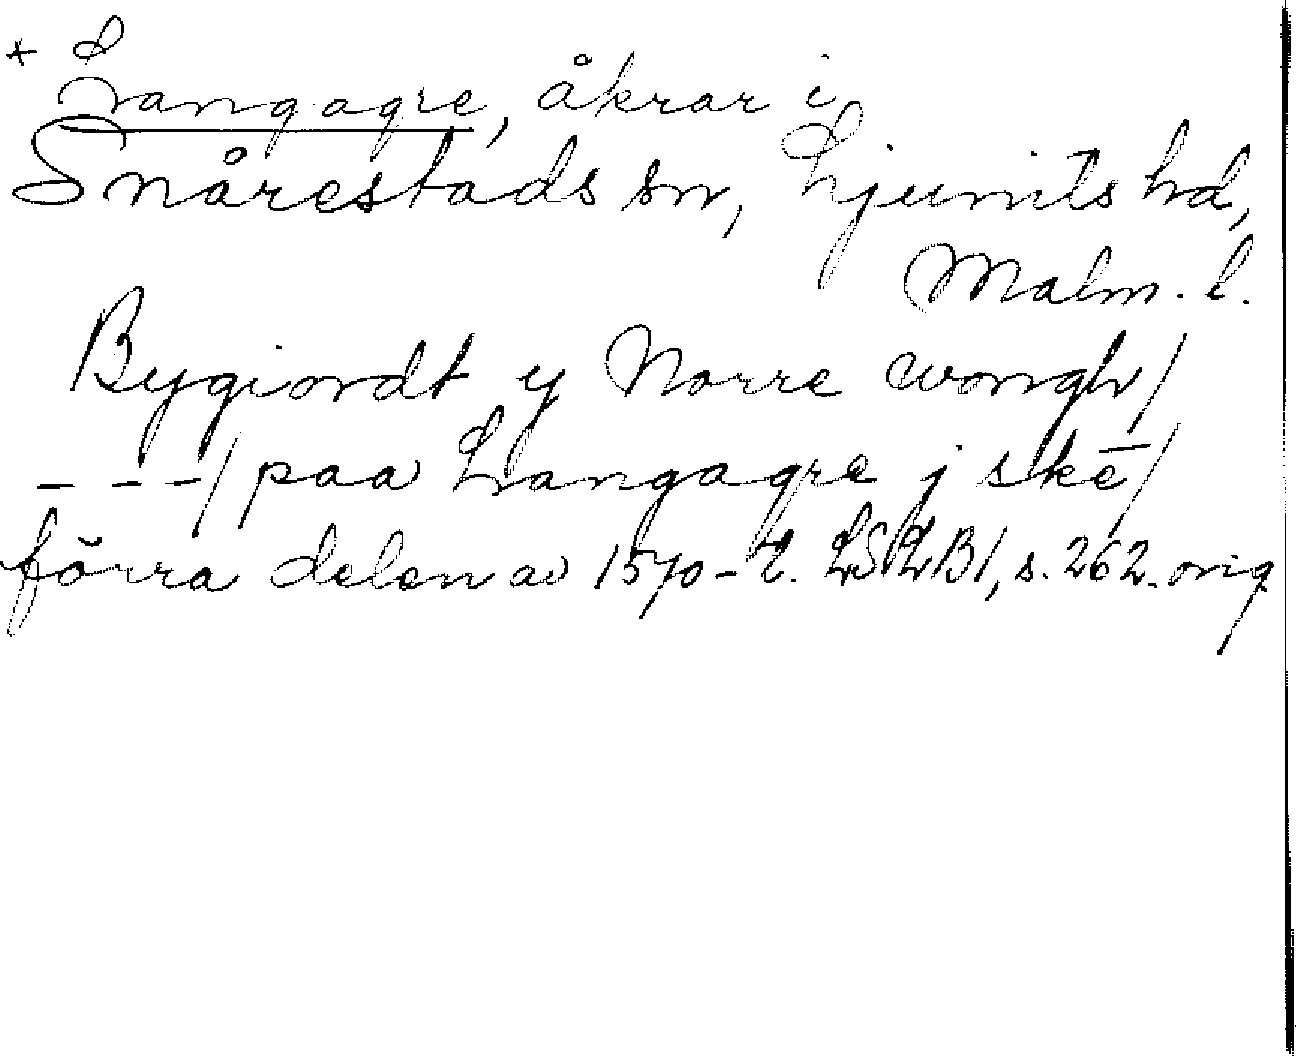 + Langagre, åkrar i
Snårestads sn, Ljunits hd,
Malm. l.
Bygiordt y Norre wongh/
---/ paa Langagre j skē/
förra delen av 1570-t. LSLB1, s. 262. orig